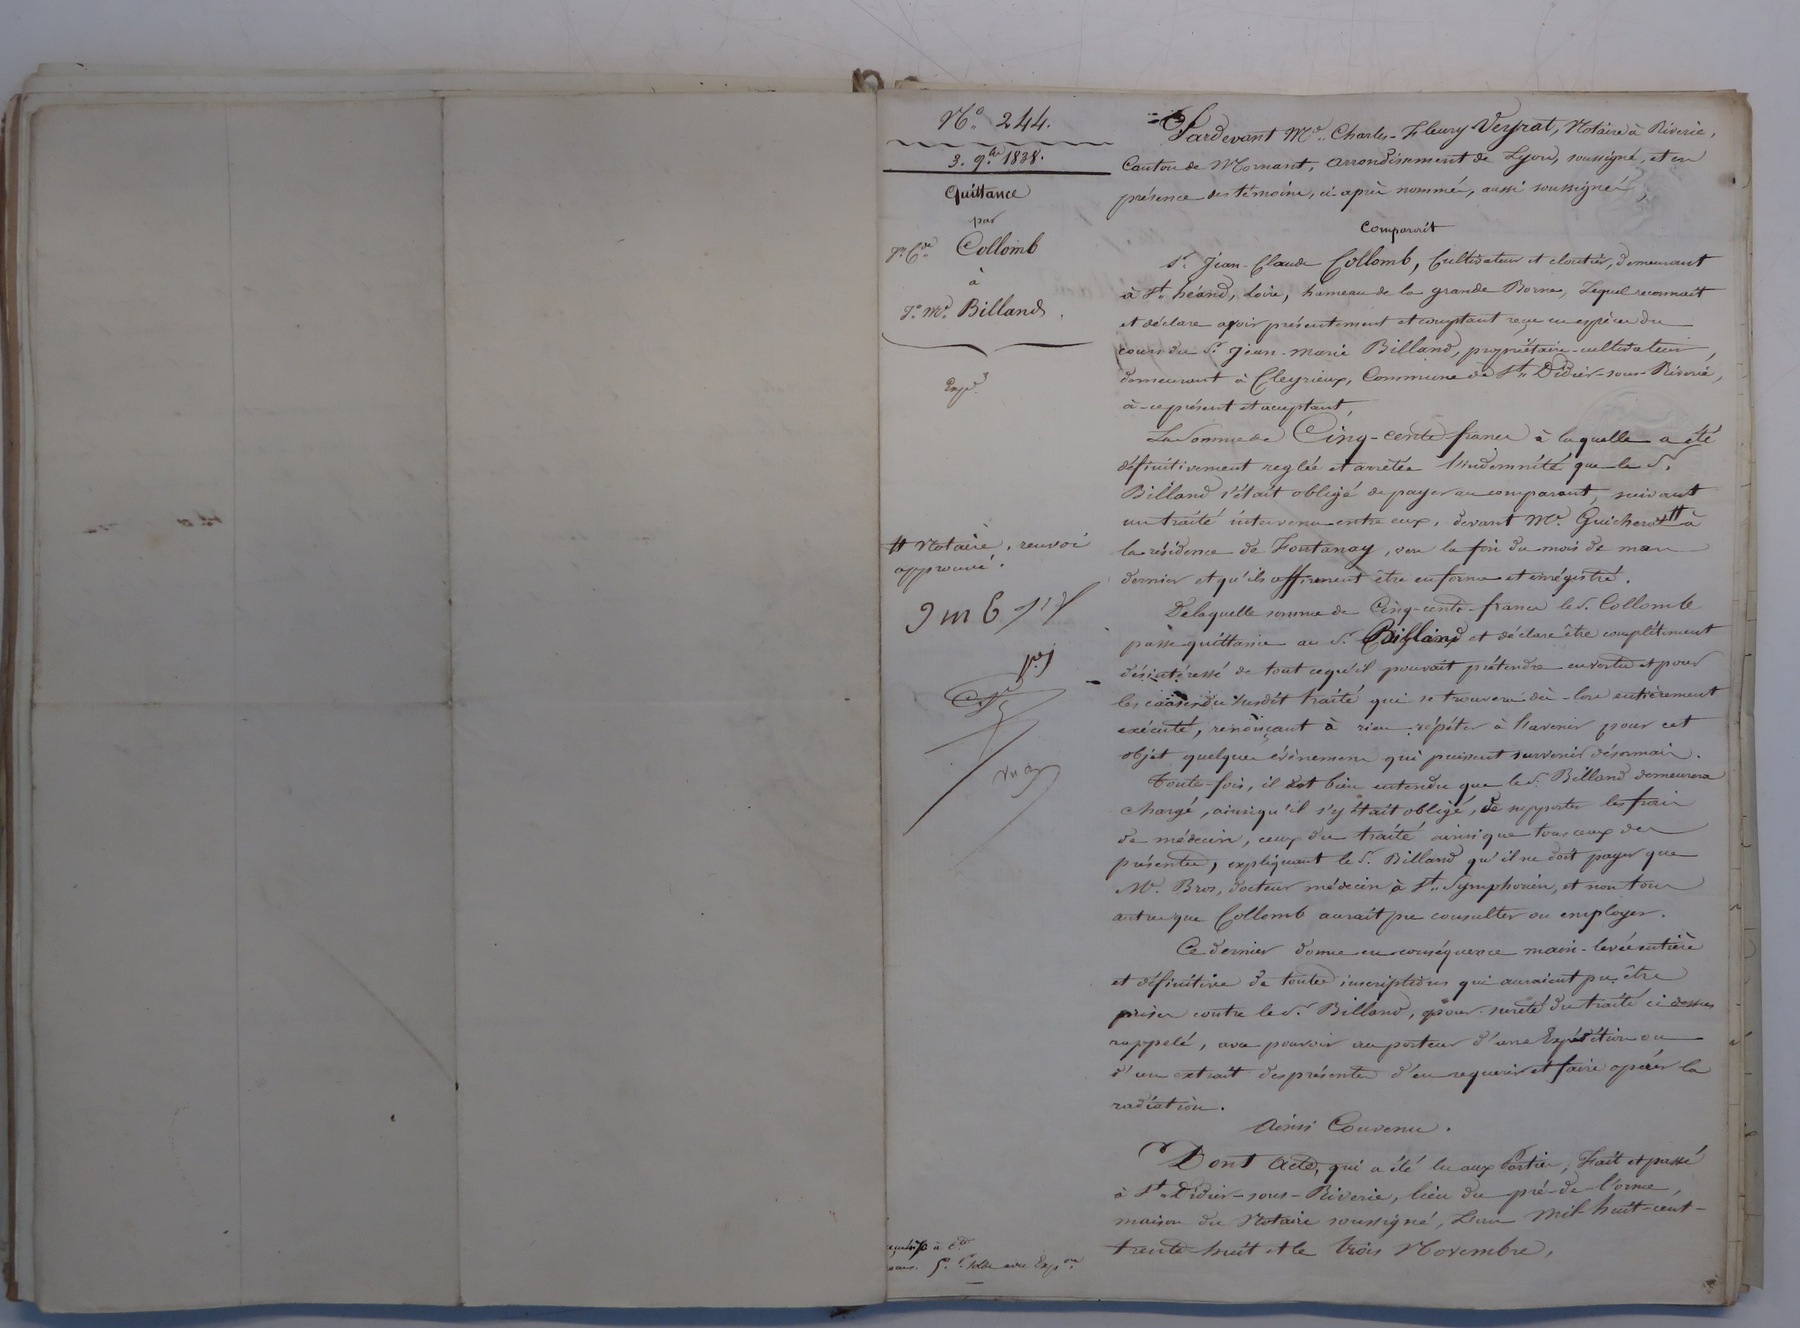 N.° 244.
3. 9.bre 1838.
Quittance
par
Jn Cde Collomb
à
Jn Mie Billand
Expé
# Notaire, renvoi
approuvé.
J m B
Pardevant Me. Charles-Fleury Veyrat, Notaire à Riverie,
Canton de Mornant, arrondissement de Lyon, soussigné, et en
présence des témoins, ci-après nommés, aussi soussignés,
Comparait
Sr. Jean-Claude Collomb, Cultivateur et cloutier, demeurant
à St. héand, Loire, hameau de la grande Borne, Lequel reconnait
et déclare avoir présentement et comptant reçu en espèces du
cours du Sr. Jean-Marie Billand, propriétaire-cultivateur,
demeurant à Cleyrieux, Commune de St. Didier-sous-Riverie,
à-ce présent et acceptant,
La Somme de Cinq-cents francs à laquelle a été
définitivement reglée et arrêtée l'indemnité que le Sr.
Billand s'était obligé de payer au comparant, suivant
un traité intervenu entre eux, devant Me. Guicherd # à
la résidence de Fontanay, vers la fin du mois de mars
dernier et qu'ils affirment être en forme et enregistré.
De laquelle somme de Cinq-cents-francs le Sr. Collomb
passe quittance au Sr. Billand et déclare être complétement
désintéressé de tout ce qu'il pouvait prétendre en vertu et pour
les causes du susdit traité qui se trouvera dès-lors entièrement
exécuté, renonçant à rien répéter à l'avenir pour cet
objet quelques évènemens qui puissent survenir désormais.
Toute-fois, il est bien entendu que le Sr. Billand demeurera
chargé, ainsi qu'il s'y était obligé, de supporter les frais
de médecin, ceux du traité ainsi que tous ceux des
présentes, expliquant le Sr. Billand qu'il ne doit payer que
Mr. Bros, docteur médecin à St. Symphorien, et non tous
autres que Collomb aurait pu consulter ou employer.
Ce dernier donne en conséquence main-levée entière
et définitive de toutes inscriptions qui auraient pu être
prises contre le Sr. Billand, pour sureté du traité ci dessus
rappelé, avec pouvoir au porteur d'une Expédition ou
d'un extrait des présentes d'en requerir et faire opérer la
radiation.
Ainsi Convenu.
Dont Acte, qui a été lu aux Parties, Fait et passé
à St. Didier-sous-Riverie, lieu du pré-de l'orme,
maison du Notaire soussigné, L'an mil huit-cent-
trente huit et le trois Novembre,